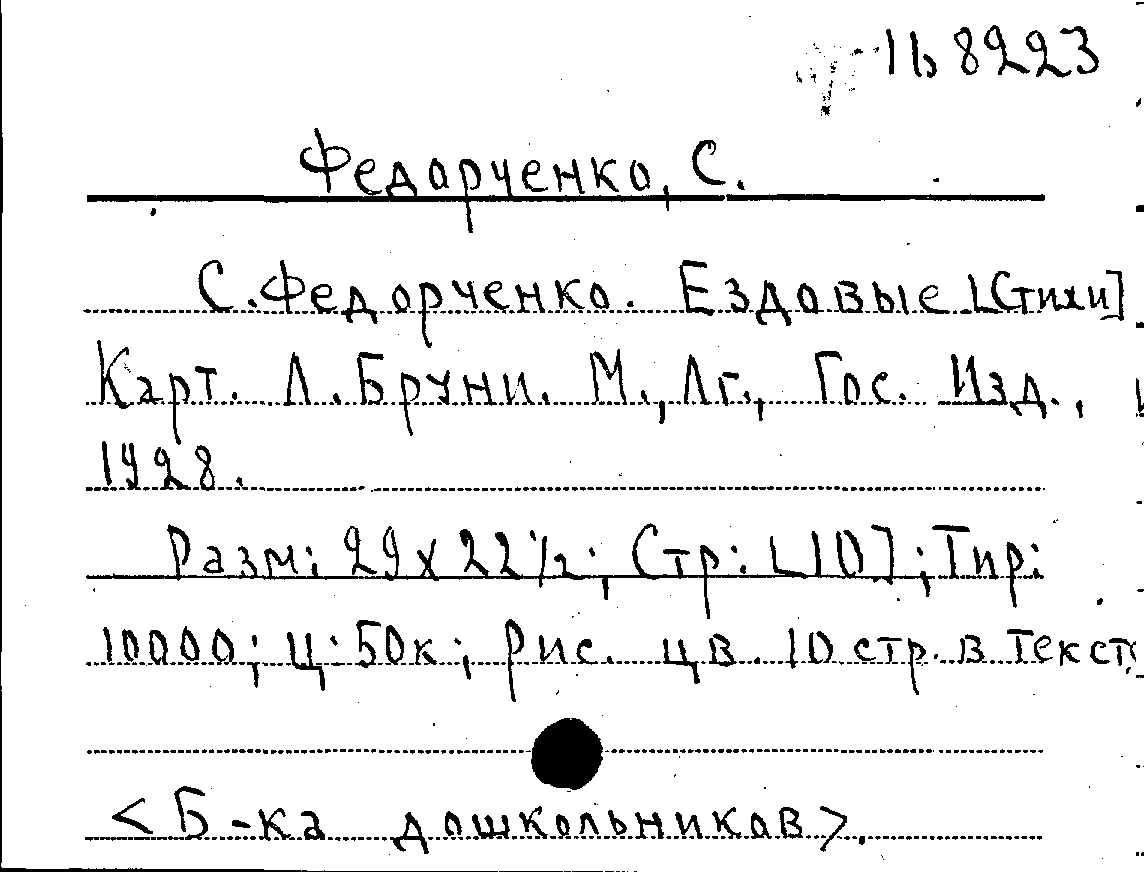 1b 8223
Федорченко, С.
С. Федорченко. Ездовые [Стихи]
Карт. Л. Бруни. М., Лг., Гос. Изд.,
1928.
Разм: 29 х 22 1/2; Стр: [10]; Тир:
10000; Ц: 50к; Рис. цв. 10 стр. в
<Б-ка дошкольников>.